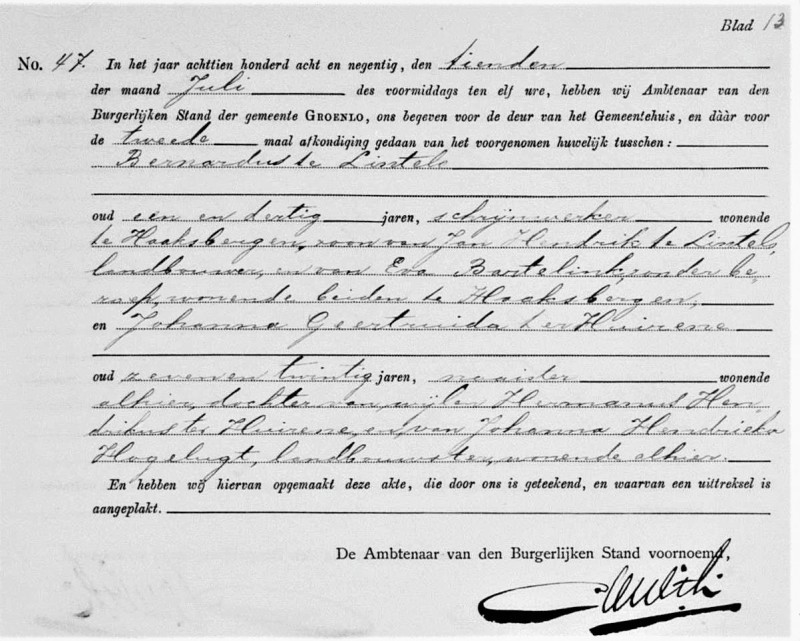 Blad 13
No. 47. In het jaar achttien honderd acht en negentig, den tienden
der maand Juli des voormiddags ten elf ure, hebben wij Ambtenaar van den
Burgerlijken Stand der gemeente GROENLO, ons begeven voor de deur van het Gemeentehuis, en dààr voor
de tweede maal afkondiging gedaan van het voorgenomen huwelijk tusschen:
Bernardus te Lintelo
oud een en dertig jaren, schrijnwerker wonende
te Haaksbergen, zoon van Jan Hendrik te Lintelo,
landbouwer, en van Eva Bartelink, zonder be-
roep, wonende beiden te Haaksbergen,
en Johanna Geertruida ter Huirene
oud zeven en twintig jaren, naaister wonende
alhier, dochter van wijlen Hermanus Hen-
drikus ter Huirene, en van Johanna Hendrica
Hogelugt, landbouwster, wonende alhier.
En hebben wij hiervan opgemaakt deze akte, die door ons is geteekend, en waarvan een uittreksel is
aangeplakt.
De Ambtenaar van den Burgerlijken Stand voornoemd,